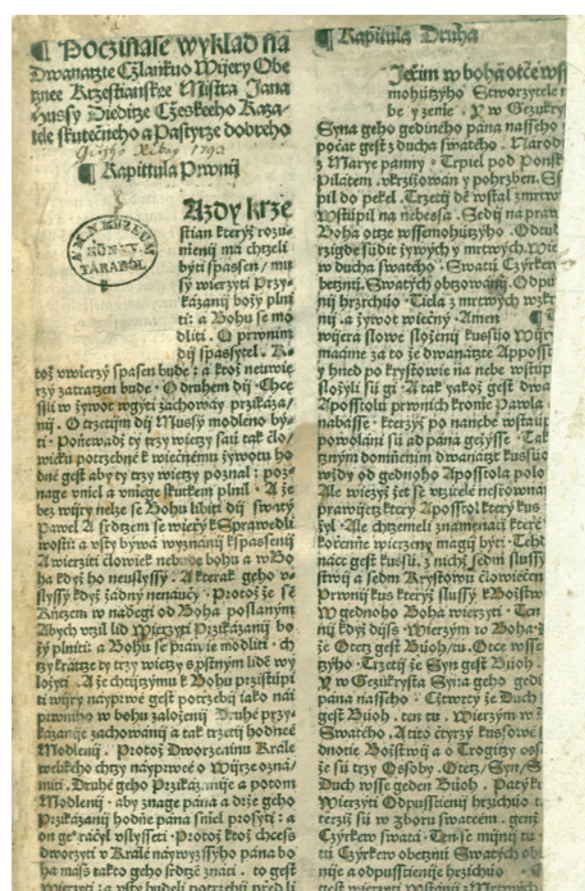 ¶ Poczinase wyklad na
Dwanatzte Cżlankuo Wijery Obe
tznee Krzestianskee Mistra Jana
Hussy Dieditze Cżeskeeho Kaza-
tele skutecneho a Pastyrze dobreho
¶ Kapittula Prwnij
Azdy krze
stian kteryż rozu-
mienij ma chtzeli
byti spassen / mu
sy wierzyti Przy-
kazanij bożij plni
ti: a Bohu se mo
dliti. O prwnim
dij spassytel. K-
toż vwierzy spasen bude: a ktoż neuwie
rzy zatratzen bude. O druhem dij. Chce
ssli w żywot wgyti zachoway przikaza/
nij. O trzetijm dij Mussy modleno by-
ti. Poniewadż ty trzy wietzy sau tak clo/
wieku potrzebne k wiecnemu żywotu ho
dne gest aby ty trzy wietzy poznal: poz-
nage vniel a vniege skutkem plnil. A że
bez wijry nelze se Bohu libiti dij swaty
Pawel A srdtzem se wierzy kSprawedli
wosti: a vsty bywa wyznanij kspassenij
A wierziti clowiek nebude bohu a wBo
ha kdyż ho neuslyssy. A kterak geho v-
slyssy kdyż żadny nenaucy. Protoż ſe sē
Knzem w nadegi od Boha poslanym
Abych vczil lid Wierzyti Przikazanij bo
ży plniti: a Bohu se prawie modliti. ch
tzy kratze ty trzy wietzy s.pstnym lidē wy
lożyti. A że chtijtzymu k Bohu przistupi
ti wijry nayprwe gest potrzebij iako nai
prwniho w bohu założenij Druhe przy-
kazanije zachowanij a tak trzetij hodnee
Modlenij. Protoż Dworzeninu Krale
welikeho chtzy nayprwee o Wijrze ozna/
miti. Druhe geho Przikazanije a potom
Modlenij. aby znage pana a drże geho
Przikazanij hodne pana smel prosyti: a
on ge racyl vslysseti. Protoż ktoż chcess
dworzyti v Krale naywyzssyho pana bo
ha mass takto geho srdtze znati. to gest
¶ Kapitula Druha
Jecim w boha otce wss
mohutzyho Stworzytele n
be y zenie. Y w Gezukry
Syna geho gedineho pana nasseho
pocat gest z ducha swateho. Narodi
z Marye panny. Trpiel pod Ponsk
Pilatem. vkrziżowan y pohrzben. Sſ
pil do pekel. Trzetij dē wstal zmrtw
Wstupil na nebessa. Sedij na praw
Boha ottze wssemohutzyho. Odtud
rzigde sudit żywych y mrtwych. Wie
w ducha swateho. Swatu Cyrkew
betznu. Swatych obtzowanij. Odpu
nij hrzichuo. Tiela z mrtwych wzkr
nij. a żywot wiecny. Amen ¶
wijera slowe slożenij kussuo Wijry
maame za to że dwanatzte Apposst
y hned po krystowie na nebe wstup
slożyli su gi. A tak yakoż gest dwa
Aposstolu prwnich kromie Pawla
nabasse. kterziż po nanebe wstaup
powolani su ad pana geżysse. Tak
tznym domnenim dwanatzt kussuo
wżdy od gednoho Aposstola polo
Ale wiezyż żet se vtzitele nesrowna
prawijetz ktery Aposstol ktery kus
żyl. Ale chtzemeli znamenati ktere
korzenie wierzeny magij byti. Tehd
nacc gest kussu. z nichż sedm slussy
stwij a sedm Krystowu clowiecen
Prwnij kus kteryż slussy kBożstw
W gednoho Boha wierzyti. Ten
nij kdyż dijs. Wierzym w Boha. D
że Otetz gest Buoh / tu. Otce wsse
tzyho. Trzetij że Syn gest Buoh.
Y w Gezukrysta Syna geho gedi
pana nasseho. Cżtwrty że Duch
gest Buoh. ten tu. Wierzym w
Swateho. A tito ctyrzy kussowe
dnotie Bożstwij a o Trogitzy oss
że su trzy Ossoby. Otetz / Syn / S
Duch wsse geden Buoh. Patyk
Wierzyti Odpusstienij hrzichuo t
terziż su w zboru swateem. genż
Cyrkew swata. Ten se mijnij tu
tu Cyrkew obetznu Swatych ob
nije a odpusstienije hrzichuo